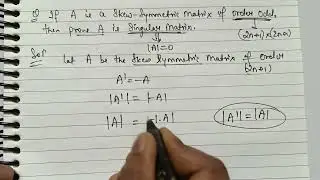 Q. If A is a Skew-Symmetric Matrix of order odd,
then prove A is Singular Matrix.
|A|=0
(2n+1)×(2n+1)
Sol Let A be the Skew Symmetric Matrix of order
(2n+1)
A' = -A
|A'| = |-A|
|A| = -|A|
|A'| = |A|